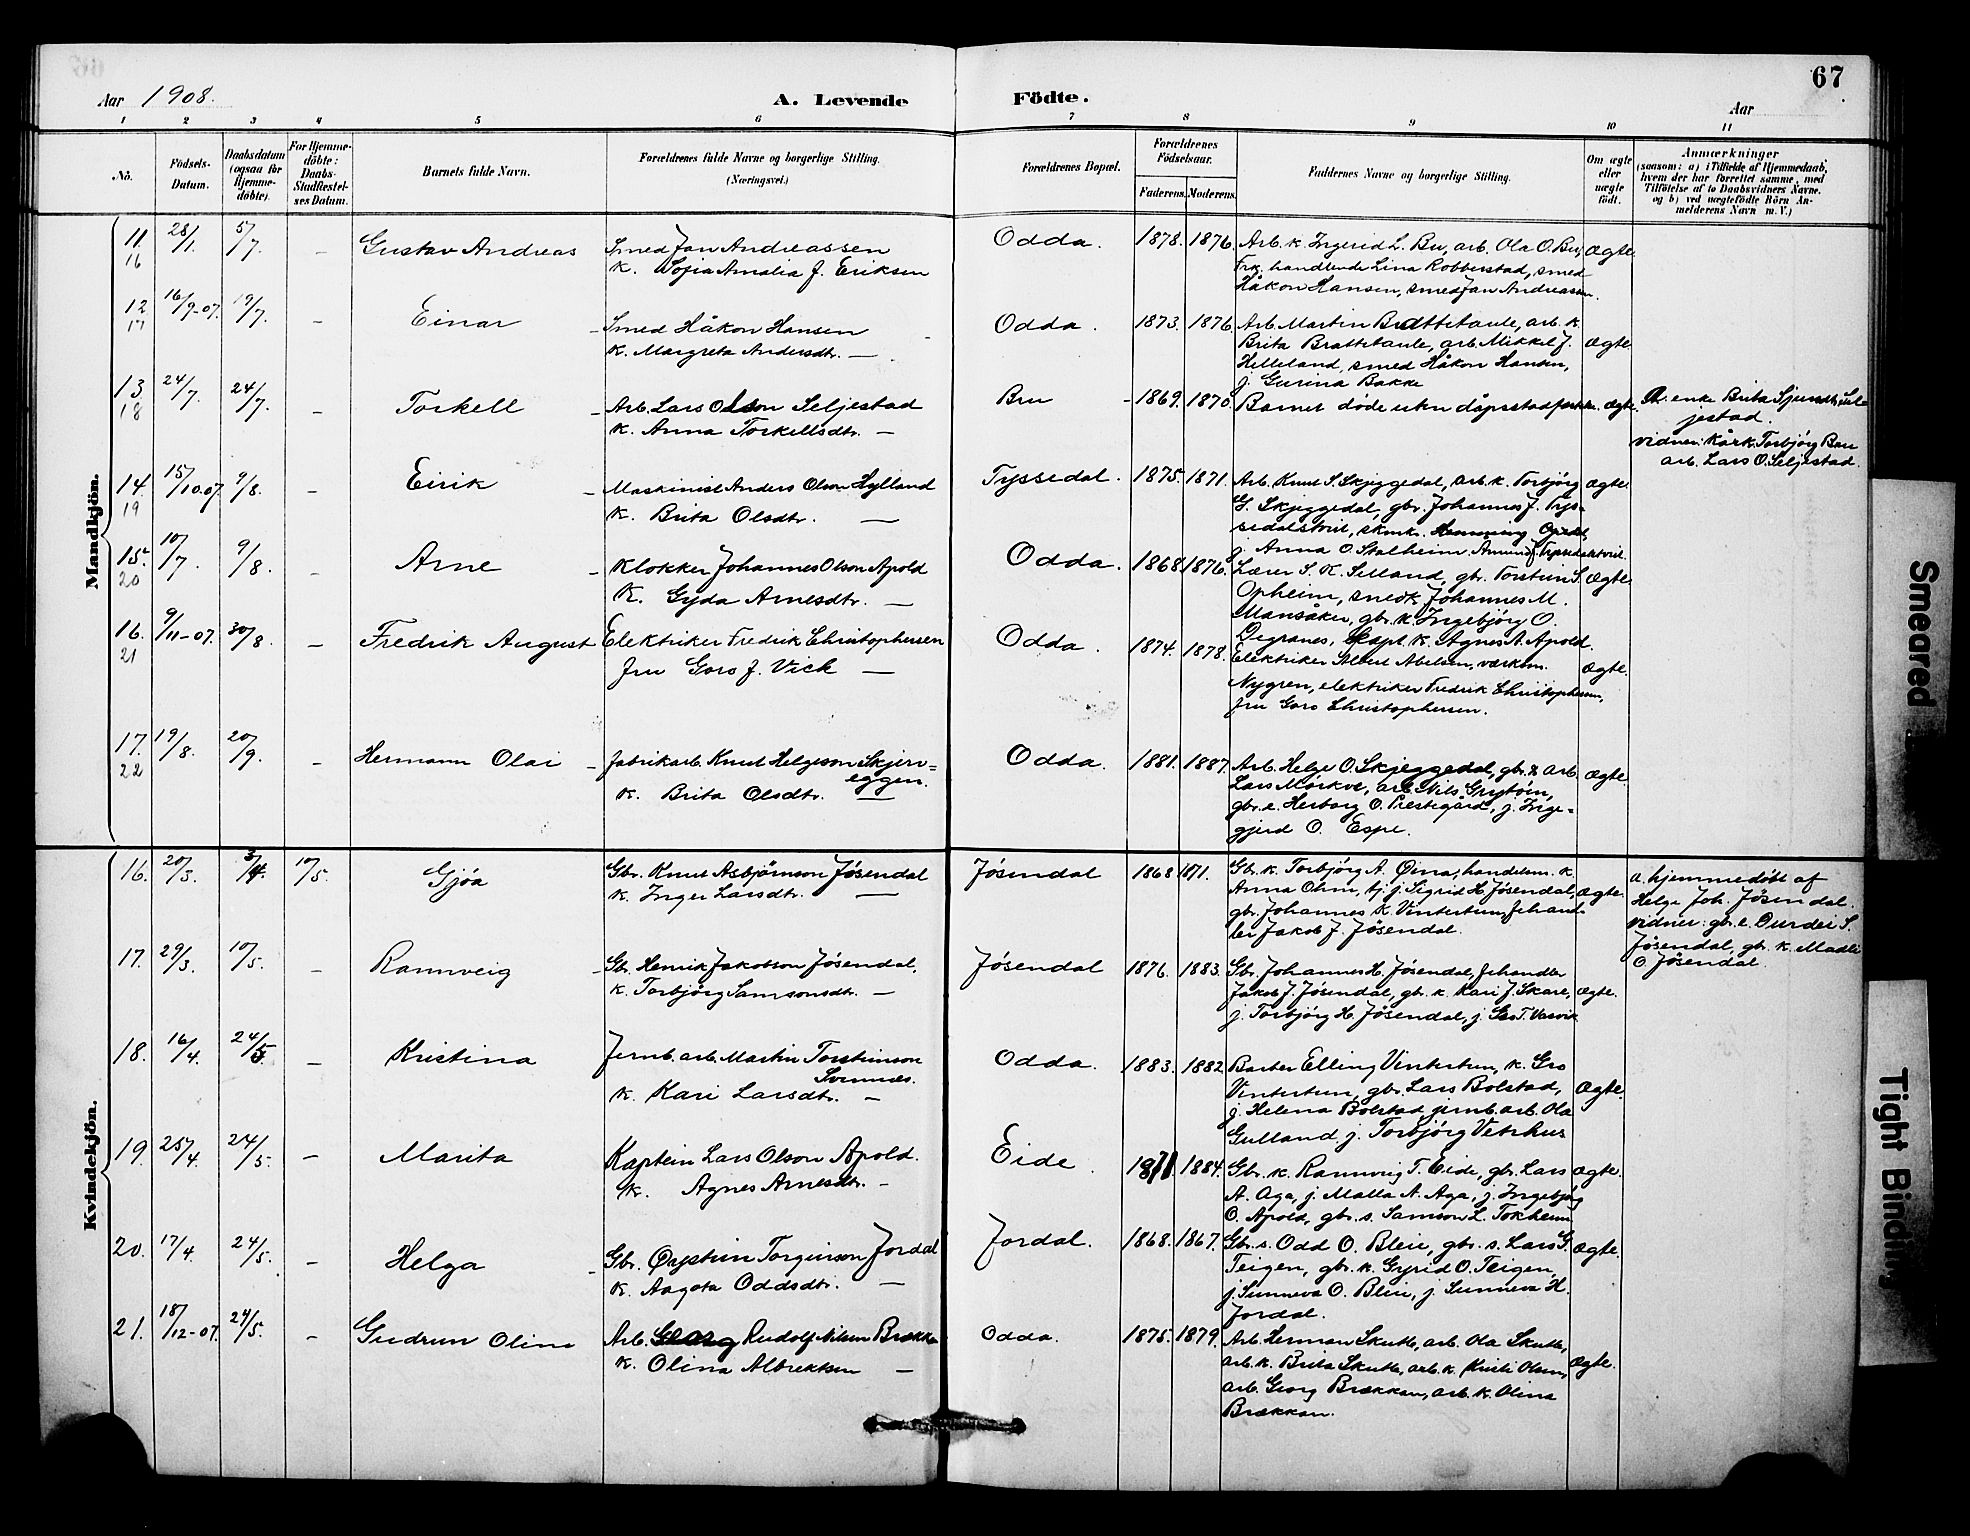 67
Aar 1908.
A. Levende Födte.
Aar
1 2 3 4 5 6 7 8 9 10 11
No.
Födsels-Datum.
Daabsdatum (ogsaa for Hjemme-döbte).
For Hjemme-döbte: Daabs-Stadfæstel-ses Datum.
Barnets fulde Navn.
Forældrenes fulde Navne og borgerlige Stilling. (Næringsvei.)
Forældrenes Bopæl.
Forældrenes Födselsaar.
Faderens. Moderens.
Faddernes Navne og borgerlige Stilling.
Om ægte eller uægte født.
Anmærkninger
(saasom: a) i Tilfælde af Hjemmedaab, hvem der har forrettet samme, med Tilföielse af to Daabsvidners Navne. og b) ved uægtefødte Börn An-melderens Navn m. V.)
Mandkjön.
11. 16 28/1. 5/7. – Gustav Andreas
Smed Jan Andreassen
k. Sofia Amalia f. Eriksen
Odda. 1878. 1876.
Arb. k. Ingerid L. Bu, arb. Ola O. Bu,
Frk. handlende Lina Robberstad, smed
Håkon Hansen, smed Jan Andreassen.
ægte.
12 17 16/9-07. 19/7. – Einar
Smed Håkon Hansen
k. Margreta Andersdtr. —
Odda. 1873. 1876.
Arb. Martin Brattetaule, arb. k.
Brita Brattetaule, arb. Mikkel J.
Helleland, smed Håkon Hansen,
j. Gurina Bakke
ægte.
13 18 24/7. 24/7. – Torkell
Arb. Lars Olson Seljestad
k. Anna Torkellsdtr. —
Bru 1869. 1870.
Barnet døde
ægte.
a. enke Brita Sel-
jestad.
vidner: Torbjörg Bru
arb. Lars O. Seljestad.
14. 19 15/10.07. 9/8. – Eirik
Maskinist Anders Olson Hylland
k. Brita Olsdtr. —
Tyssedal. 1875. 1871.
Arb. Knut S. Skjeggedal, arb. k. Torbjörg
G. Skjeggedal, gbr. Johannes J. Tys-
sedalstveit, Henning
j. Anna O. Stalheim
ægte.
15. 20 10/7. 9/8. – Arne
Klokker Johannes Olson Apold
k. Gyda Arnesdtr. —
Odda. 1868. 1876.
Lærer S. K. Selland, gbr. Torstein S.
Opheim, Johannes M.
Mansåker, gbr. k. Ingebjörg O.
Degranes, kapt. k. Agnes A. Apold.
ægte.
16. 21 9/11-07. 30/8. – Fredrik August
Elektriker Fredrik Christophersen
fru Goro f. Vick —
Odda. 1874. 1878.
Elektriker Albert Abelsen, værksm.
Nygren, elektriker Fredrik Christophersen,
fru Goro Christophersen.
ægte.
17. 22 19/8. 20/9. – Hermann Olai
fabrikarb. Knut Helgeson Skjerv=
eggen.
k. Brita Olsdtr. —
Odda. 1881. 1887.
Arb. Helge O. Skjeggedal, gbr. & arb.
Lars Mörkve, arb. Nils Grytöim,
gbr. e. Herborg O. Prestegård, j. Inge=
gjerd O. Espe.
ægte.
Kvindekjön.
16. 20/3. 3/4. 10/5. Gjöa
Gbr. Knut Asbjörnson Jösendal
k. Inger Larsdtr. —
Jösendal 1868 1871.
Gbr. k. Torbjörg A. handelsm. k.
Anna Ohm, tj. j. Sigrid H. Jösendal,
gbr. Johannes K. Vintertun, fehand-
ler Jakob J. Jösendal.
ægte.
a. hjemmedöbt af
Helge Joh. Jösendal.
vidner: gbr. e. Durdei S.
Jösendal, gbr. k. Madli
O. Jösendal.
17. 29/3. 10/5. – Rannveig
Gbr. Henrik Jakobson Jösendal,
k. Torbjörg Samsonsdtr. —
Jösendal 1876. 1883.
Gbr. Johannes H. Jösendal, fehandler
Jakob J. Jösendal, gbr. k. Kari J. Skare,
j. Torbjörg H. Jösendal, j.
ægte.
18. 16/4. 24/5. – Kristina
Jernb. arb. Martin Torsteinson
k. Kari Larsdtr. —
Odda. 1883. 1882
Barber Elling Vintertun, k. Gro
Vintertun, gbr. Lars Bolstad,
j. Helena Bolstad, jernb. arb. Ola
Gulland, j. Torbjörg Vetrhus
ægte.
19. 25/4. 24/5. – Marita
Kaptein Lars Olson Apold.
k. Agnes Arnesdtr. –
Eide. 1871 1884.
Gbr. k. Rannveig T. Eide, gbr. Lars
A. Aga, j. Malla A. Aga, j. Ingebjörg
O. Apold, gbr. s. Samson L. Tokheim
ægte.
20. 17/4. 24/5. – Helga
Gbr. Øystein Torgeirson Jordal
k. Aagota Oddsdtr. —
Jordal. 1868. 1867.
Gbr. s. Odd O. Bleie, gbr. s. Lars G.
Teigen, gbr. k. Gyrid O. Teigen,
j. Sunneva O. Bleie, j. Sunneva H.
Jordal.
ægte.
21. 18/12-07. 24/5. – Gudrun Oline
Arb. Georg Rudolf Nilsen Brækkan
k. Olina Albrektsen —
Odda. 1875. 1879.
Arb. Herman Skutle, arb. Ola Skutle,
arb. k. Brita Skutle, arb. k. Kristi Olsen,
arb. Georg Brækkan, arb. k. Olina
Brækkan.
ægte.
Smeared
Tight Binding